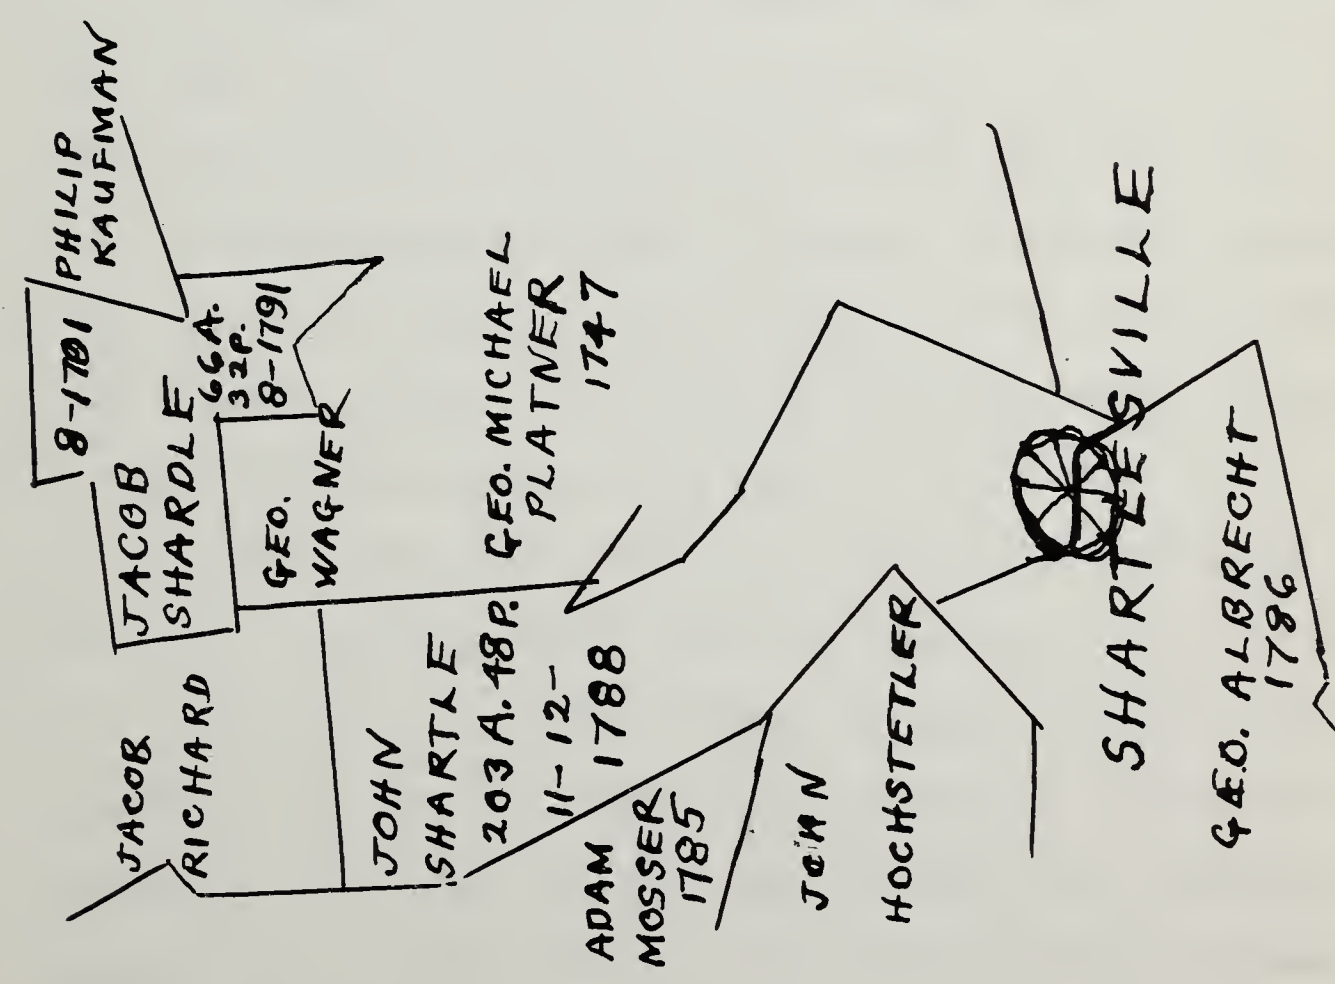 PHILIP
KAUFMAN
8-1791
JACOB
SHARDLE
66 A.
32 P.
8-1791
GEO.
WAGNER
JACOB
RICHARD
JOHN
SHARTLE
203 A. 48 P.
11-12-
1788
GEO. MICHAEL
PLATNER
1747
ADAM
MOSSER
1785
JOHN
HOCHSTETLER
SHARTLESVILLE
GEO. ALBRECHT
1786